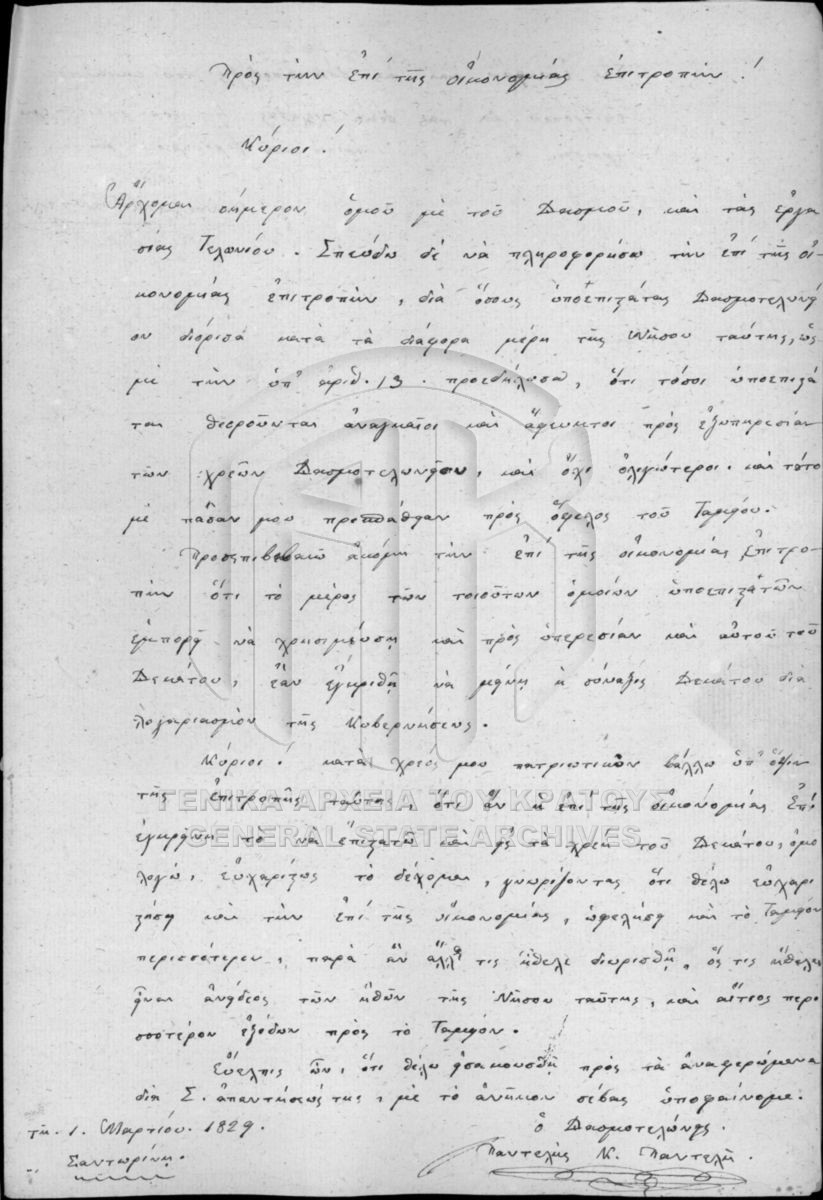 Πρὸς τὴν ἐπὶ τῆς οἰκονομίας ἐπιτροπὴν!
Κύριοι!
Ἄρχομαι σήμερον ὁμοῦ μὲ τοῦ Δασμοῦ, καὶ τὰς ἐργα
σίας Τελωνίου. Σπεύδω δὲ νὰ πληροφορήσω τὴν ἐπὶ τῆς οἰ-
κονομίας ἐπιτροπὴν, διὰ ὅσους ὑποεπιστάτας Δασμοτελωνεί
ου διόρισα κατὰ τὰ διάφορα μέρη τῆς Νήσου ταύτης, ὡς
μὲ τὴν ὑπ' ἀριθ. 13. προεδήλωσα, ὅτι τόσοι ὑποεπιστά
ται θεοροῦνται ἀναγκαῖοι καὶ ἄφευκτοι πρὸς ἐξυπηρεσίαν
τῶν χρεῶν Δασμοτελωνείου, καὶ ὄχι ὀλιγώτεροι. καὶ τοῦτο
μὲ πᾶσαν μου προσπάθειαν πρὸς ὄφελος τοῦ Ταμείου.
Προσεπιβεβαιῶ ἀκόμη τὴν ἐπὶ τῆς οἰκονομίας ἐπιτρο-
πὴν ὅτι τὸ μέρος τῶν τοιούτων ὁμοίων ὑποεπιστατῶν
ἐμπορεῖ νὰ χρησιμεύσῃ καὶ πρὸς ὑπερεσίαν καὶ αὐτοῦ τοῦ
Δεκάτου, ἐὰν ἐγκριθῇ νὰ μείνῃ ἡ σύναξις Δεκάτου διὰ
λογαριασμὸν τῆς Κυβερνήσεως.
Κύριοι! κατὰ χρέος μου πατριωτικὸν βάλλω ὑπ' ὄψιν
τῆς ἐπιτροπῆς ταύτης, ὅτι ἂν ἡ ἐπὶ τῆς οἰκονομίας Ἐπὶ
ἐγκρίνῃ τὸ νὰ ἐπιστατῶ καὶ εἰς τὰ χρέη τοῦ Δεκάτου, ὁμο
λογῶ, εὐχαρίστως τὸ δέχομαι, γνωρίζοντας ὅτι θέλω εὐχαρι
στήσῃ καὶ τὴν ἐπὶ τῆς οἰκονομίας, ὠφελήσῃ καὶ τὸ Ταμεῖον
περισσότερον, παρὰ ἂν ἄλλος τις ἤθελε διωρισθῇ, ὅς τις ἤθελεν
εἶναι ἀνείδεος τῶν ἠθῶν τῆς Νήσου ταύτης, καὶ αἴτιος περι
σσοτέρον ἐξόδων πρὸς τὸ Ταμεῖον.
Εὔελπις ὢν, ὅτι θέλω εἰσακουσθῇ πρὸς τὰ ἀναφερώμενα
διὰ Σ. ἀπαντήσεώς της, μὲ τὸ ἀνῆκον σέβας ὑποφαίνομαι.
τῇ. 1. Μαρτίου. 1829.
ὁ Δασμοτελώνης.
Σαντωρίνῃ.
Παντελῆς Κ. Παντελῆ.
ΓΕΝΙΚΑ ΑΡΧΕΙΑ ΤΟΥ ΚΡΑΤΟΥΣ
GENERAL STATE ARCHIVES